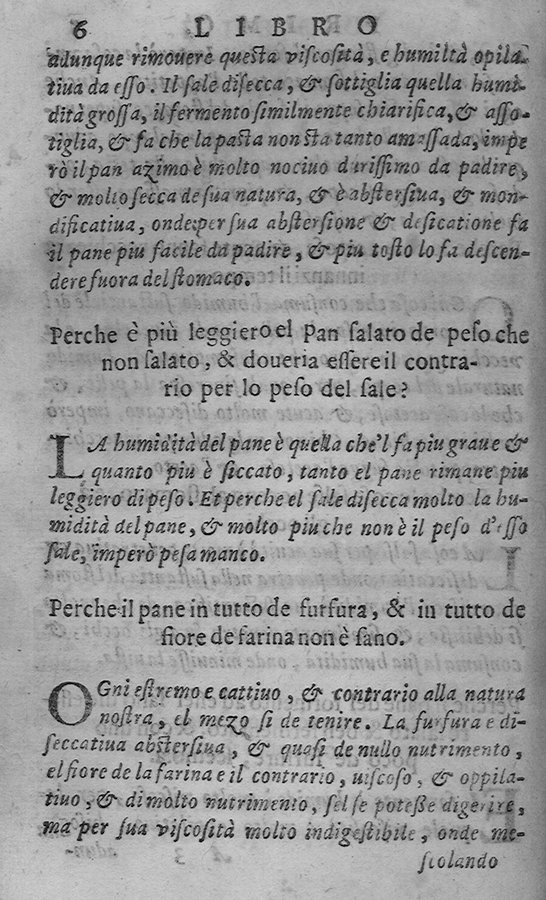 6 LIBRO
adunque rimouere questa viscosità, e humiltà opila-
tiua da esso. Il sale disecca, & sottiglia quella humi-
dità grossa, il fermento similmente chiarifica, & asso-
tiglia, & fa che la pasta non sta tanto amassada, impe
rò il pan azimo è molto nociuo durissimo da padire,
& molto secca de sua natura, & è abstersiua, & mon-
dificatiua, onde per sua abstersione & desicatione fa
il pane piu facile da padire, & piu tosto lo fa descen-
dere fuora del stomaco.
Perche è più leggiero el pan salato de peso che
non salato, & doueria essere il contra-
rio per lo peso del sale?
LA humidità del pane è quella che'l fa piu graue &
quanto piu è siccato, tanto el pane rimane piu
leggiero di peso. Et perche el sale disecca molto la hu-
midità del pane, & molto piu che non è il peso d'esso
sale, imperò pesa manco.
Perche il pane in tutto de furfura, & in tutto de
fiore de farina non è sano.
OGni estremo e cattiuo, & contrario alla natura
nostra, el mezo si de tenire. La furfura e di-
seccatiua abstersiua, & quasi de nullo nutrimento,
el fiore de la farina e il contrario, uiscoso, & oppila-
tiuo, & di molto nutrimento, sel se potesse digerire,
ma per sua viscosità molto indigestibile, onde me-
scolando